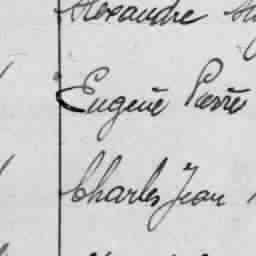 Alexandre
Eugène Pierre
Charles Jean